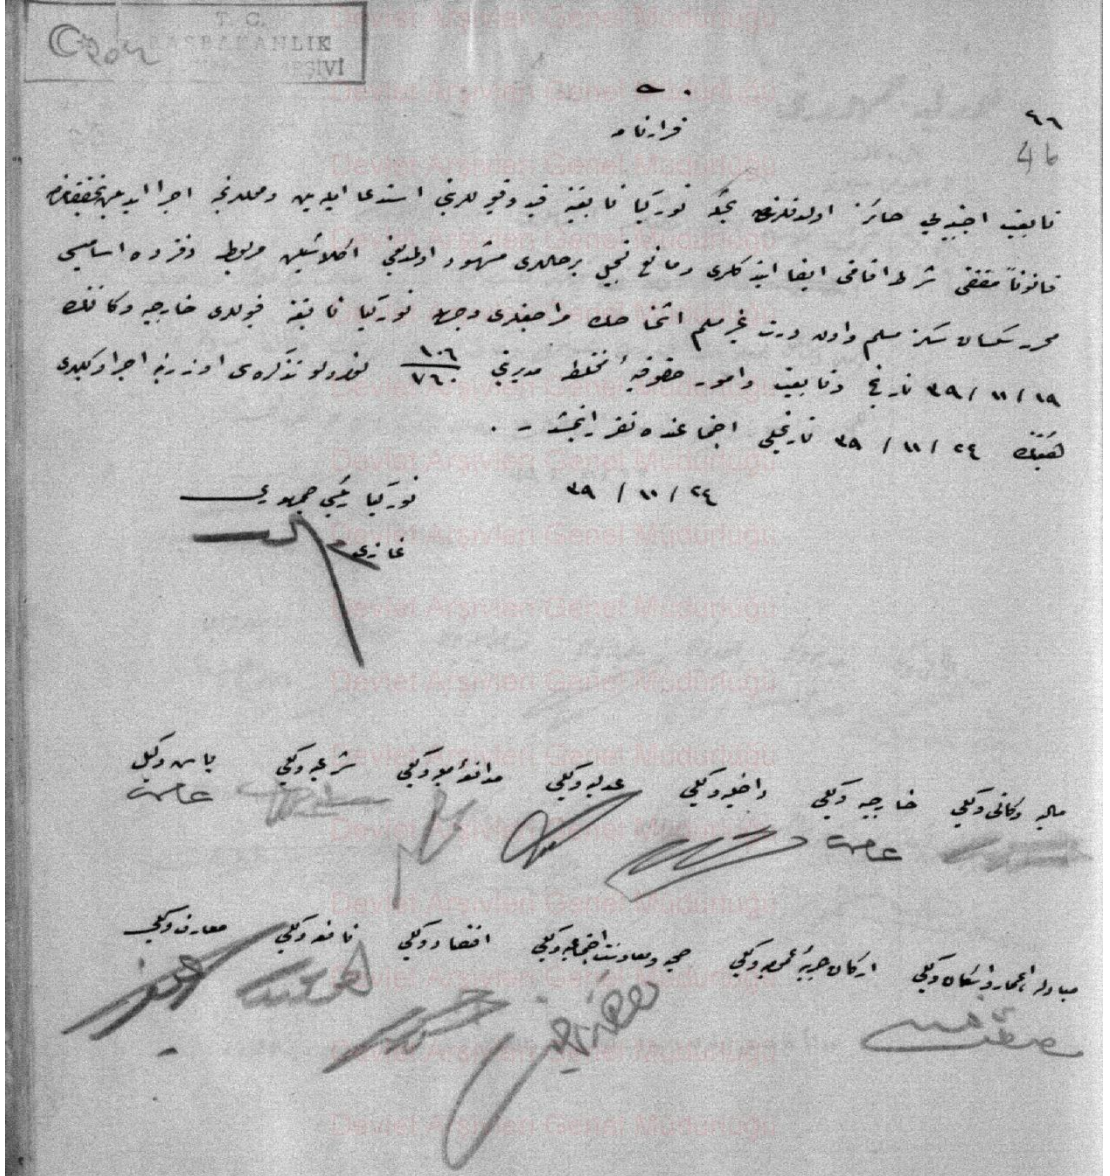 T. C.
BAŞBAKANLIK
ARŞİVİ
Devlet Arşivleri Genel Müdürlüğü
٤٦
46
قرارنامه
تابعیت اجنبیه‌یی حائز اولدقلرندن تورکیا تابعیتنه قید و قبوللرینی استدعا ایدن و محللرنجه اجرا ایدیلن تحقیقاتده
قانوناً مقتضی شرط اقامتی ایفا ایتدکلری و مانع بر حاللری مشهود اولمدیغی اکلاشیلان مربوط دفترده اسامیسی
محرر سکسان سکز مسلم و اون درت غیر مسلم اشخاصك تورکیا تابعیتنه قبوللری خارجیه وکالتنك
١٩ / ١١ / ٣٩ تاریخ و تابعیت و امور حقوقیهٔ مختلطه مدیریتی ١٠٦ / ٧٦٠ نومرولو تذکره‌سی اوزرینه اجرا وکیللری
هیئتنك ٢٤ / ١١ / ٣٩ تاریخلی اجتماعنده تقرر ایتمشدر .
٢٤ / ١١ / ٣٩
تورکیا رئیس جمهوری
غازی
باش وکیل
شرعیه وکیلی
مدافعهٔ ملیه وکیلی
عدلیه وکیلی
داخلیه وکیلی
خارجیه وکیلی
مالیه وکالتی وکیلی
عصمت
عصمت
معارف وکیلی
نافعه وکیلی
اقتصاد وکیلی
صحیه و معاونت اجتماعیه وکیلی
ارکان حربیهٔ عمومیه وکیلی
مبادله، اعمار و اسکان وکیلی